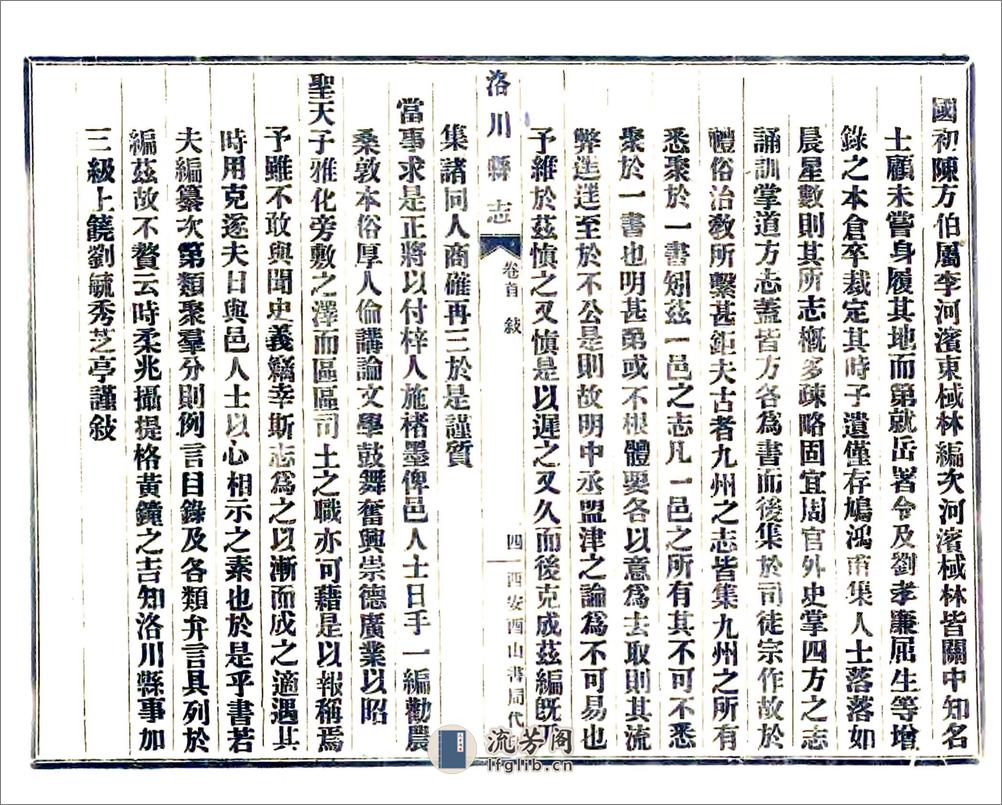 國初陳方伯屬李河濱東棫林編次河濱棫林皆關中知名
士顧未嘗身履其地而第就岳署令及劉孝廉屈生等增
錄之本倉卒裁定其時孑遺僅存鳩鴻甫集人士落落如
晨星數則其所志概多疎略固宜周官外史掌四方之志
誦訓掌道方志蓋皆方各為書而後集於司徒宗作故於
禮俗治教所繫甚鉅夫古者九州之志皆集九州之所有
悉聚於一書矧茲一邑之志凡一邑之所有其不可不悉
聚於一書也明甚第或不根體要各以意為去取則其流
弊遂至於不公是則故明中丞盟津之論為不可易也
予維於茲慎之又慎是以遲之又久而後克成茲編既乃
洛川縣志
卷首 敍
四
西安酉山書局代
集諸同人商確再三於是謹質
當事求是正將以付梓人施楮墨俾邑人士日手一編勸農
桑敦本俗厚人倫講論文學鼓舞奮興崇德廣業以昭
聖天子雅化旁敷之澤而區區司土之職亦可藉是以報稱焉
予雖不敢與聞史義竊幸斯志為之以漸而成之適遇其
時用克遂夫日與邑人士以心相示之素也於是乎書若
夫編纂次第類聚羣分則例言目錄及各類弁言具列於
編茲故不贅云時柔兆攝提格黃鐘之吉知洛川縣事加
三級上饒劉毓秀芝亭謹敍
流芳閣
lfglib.cn